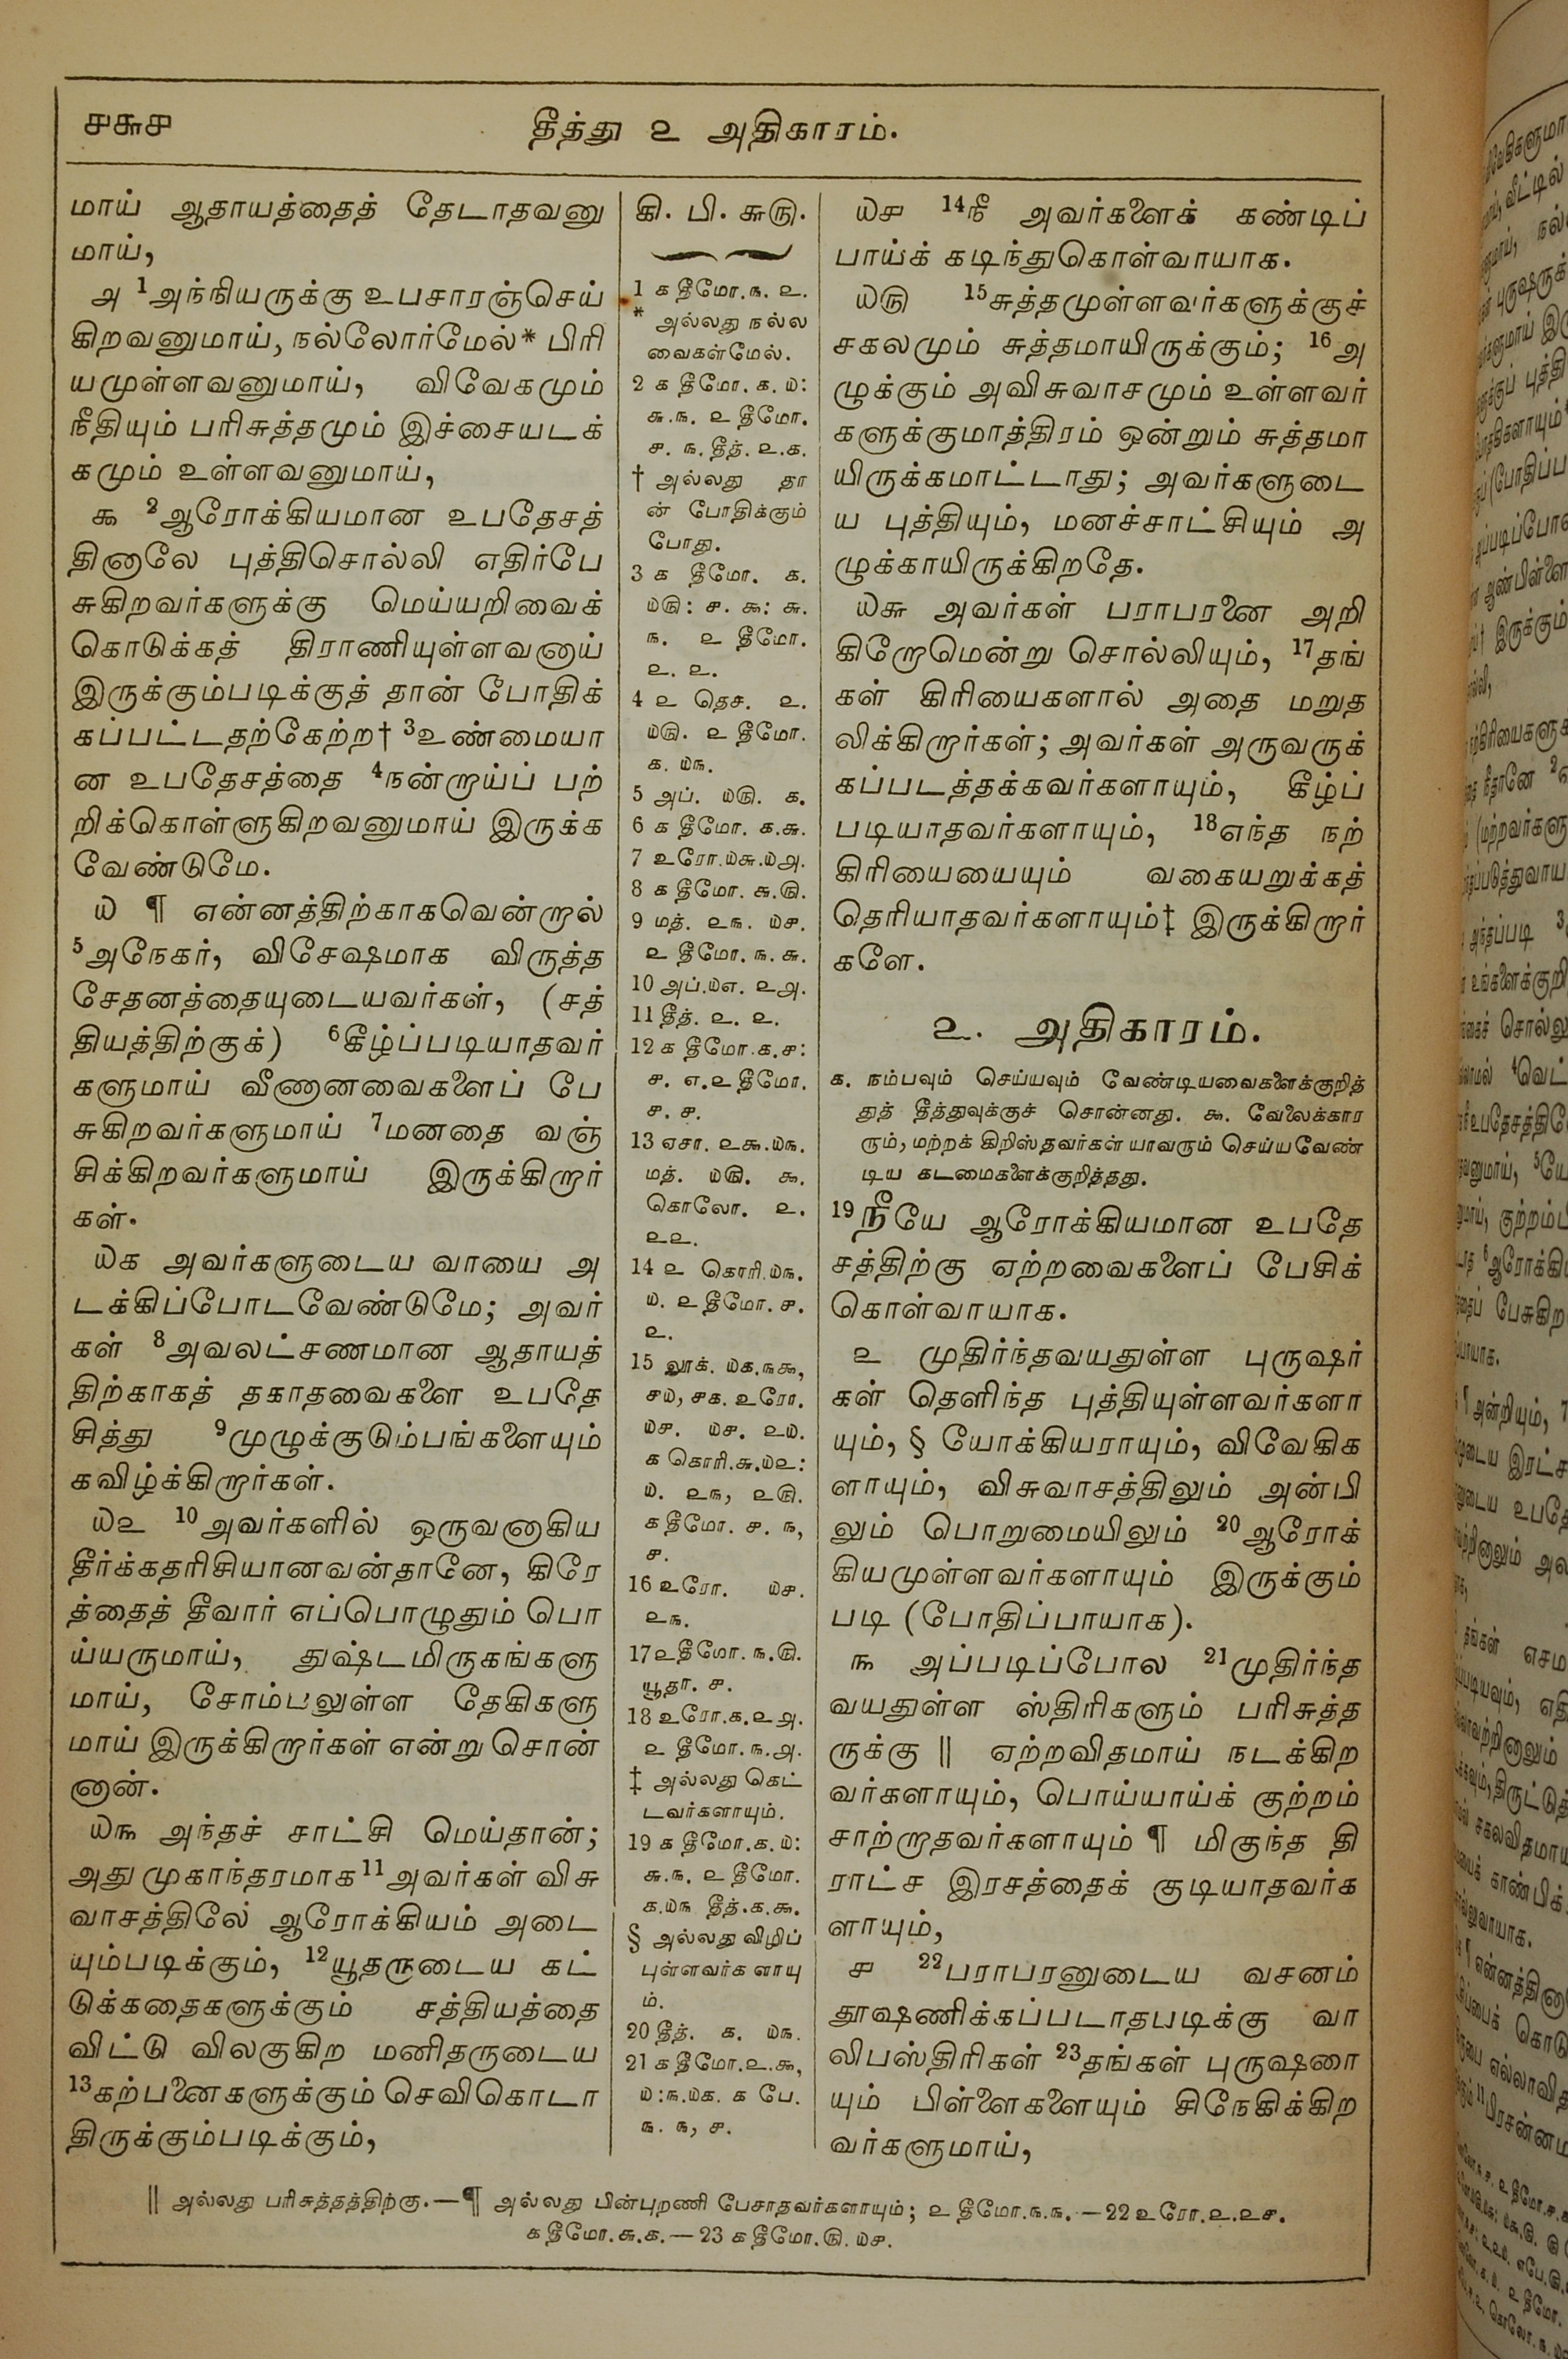 ௪௬௪
தீத்து ௨ அதிகாரம்.
மாய் ஆதாயத்தைத் தேடாதவனு
மாய்,
௮ 1அந்நியருக்கு உபசாரஞ்செய்
கிறவனுமாய், நல்லோர்மேல்* பிரி
யமுள்ளவனுமாய், விவேகமும்
நீதியும் பரிசுத்தமும் இச்சையடக்
கமும் உள்ளவனுமாய்,
௯ 2ஆரோக்கியமான உபதேசத்
தினாலே புத்திசொல்லி எதிர்பே
சுகிறவர்களுக்கு மெய்யறிவைக்
கொடுக்கத் திராணியுள்ளவனாய்
இருக்கும்படிக்குத் தான் போதிக்
கப்பட்டதற்கேற்ற† 3உண்மையா
ன உபதேசத்தை 4நன்றாய்ப் பற்
றிக்கொள்ளுகிறவனுமாய் இருக்க
வேண்டுமே.
௰ ¶ என்னத்திற்காகவென்றால்
5அநேகர், விசேஷமாக விருத்த
சேதனத்தையுடையவர்கள், (சத்
தியத்திற்குக்) 6கீழ்ப்படியாதவர்
களுமாய் வீணானவைகளைப் பே
சுகிறவர்களுமாய் 7மனதை வஞ்
சிக்கிறவர்களுமாய் இருக்கிறார்
கள்.
௰௧ அவர்களுடைய வாயை அ
டக்கிப்போடவேண்டுமே; அவர்
கள் 8அவலட்சணமான ஆதாயத்
திற்காகத் தகாதவைகளை உபதே
சித்து 9முழுக்குடும்பங்களையும்
கவிழ்க்கிறார்கள்.
௰௨ 10அவர்களில் ஒருவனாகிய
தீர்க்கதரிசியானவன்தானே, கிரே
த்தைத் தீவார் எப்பொழுதும் பொ
ய்யருமாய், துஷ்டமிருகங்களு
மாய், சோம்பலுள்ள தேகிகளு
மாய் இருக்கிறார்கள் என்று சொன்
னான்.
௰௩ அந்தச் சாட்சி மெய்தான்;
அது முகாந்தரமாக 11அவர்கள் விசு
வாசத்திலே ஆரோக்கியம் அடை
யும்படிக்கும், 12யூதருடைய கட்
டுக்கதைகளுக்கும் சத்தியத்தை
விட்டு விலகுகிற மனிதருடைய
13கற்பனைகளுக்கும் செவிகொடா
திருக்கும்படிக்கும்,
கி. பி. ௬௫.
1 ௧ தீமோ. ௩. ௨.
* அல்லது நல்ல
வைகள்மேல்.
2 ௧ தீமோ. ௧. ௰:
௬.௩. ௨ தீமோ.
௪. ௩. தீத். ௨.௧.
† அல்லது தா
ன் போதிக்கும்
போது.
3 ௧ தீமோ. ௧.
௰௫: ௪. ௯: ௬.
௩. ௨ தீமோ.
௨. ௨.
4 ௨ தெச. ௨.
௰௫. ௨ தீமோ.
௧. ௰௩.
5 அப். ௰௫. ௧.
6 ௧ தீமோ. ௧.௬.
7 உரோ.௰௬.௰௮.
8 ௧ தீமோ. ௬.௫.
9 மத். ௨௩. ௰௪.
௨ தீமோ. ௩. ௬.
10 அப்.௰௭. ௨௮.
11 தீத். ௨. ௨.
12 ௧ தீமோ.௧.௪:
௪. ௭.௨ தீமோ.
௪. ௪.
13 ஏசா. ௨௯.௰௩.
மத். ௰௫. ௯.
கொலோ. ௨.
௨௨.
14 ௨ கொரி.௰௩.
௰. ௨ தீமோ. ௪.
௨.
15 லூக். ௰௧.௩௯,
௪௰, ௪௧. உரோ.
௰௪. ௰௪. ௨௰.
௧ கொரி.௬.௰௨:
௰. ௨௩, ௨௫.
௧ தீமோ. ௪. ௩,
௪.
16 உரோ. ௰௪.
௨௩.
17 ௨ தீமோ. ௩.௫.
யூதா. ௪.
18 உரோ.௧.௨௮.
௨ தீமோ.௩.௮.
‡ அல்லது கெட்
டவர்களாயும்.
19 ௧ தீமோ.௧.௰:
௬.௩. ௨ தீமோ.
௧.௰௩ தீத்.௧.௯.
§ அல்லது விழிப்
புள்ளவர்களாயு
ம்.
20 தீத். ௧. ௰௩.
21 ௧ தீமோ.௨.௯,
௰:௩.௰௧. ௧ பே.
௩. ௩, ௪.
௰௪ 14நீ அவர்களைக் கண்டிப்
பாய்க் கடிந்துகொள்வாயாக.
௰௫ 15சுத்தமுள்ளவர்களுக்குச்
சகலமும் சுத்தமாயிருக்கும்; 16அ
ழுக்கும் அவிசுவாசமும் உள்ளவர்
களுக்குமாத்திரம் ஒன்றும் சுத்தமா
யிருக்கமாட்டாது; அவர்களுடை
ய புத்தியும், மனச்சாட்சியும் அ
ழுக்காயிருக்கிறதே.
௰௬ அவர்கள் பராபரனை அறி
கிறோமென்று சொல்லியும், 17தங்
கள் கிரியைகளால் அதை மறுத
லிக்கிறார்கள்; அவர்கள் அருவருக்
கப்படத்தக்கவர்களாயும், கீழ்ப்
படியாதவர்களாயும், 18எந்த நற்
கிரியையையும் வகையறுக்கத்
தெரியாதவர்களாயும்‡ இருக்கிறார்
களே.
௨. அதிகாரம்.
௧. நம்பவும் செய்யவும் வேண்டியவைகளைக்குறித்
துத் தீத்துவுக்குச் சொன்னது. ௯. வேலைக்கார
ரும், மற்றக் கிறிஸ்தவர்கள் யாவரும் செய்யவேண்
டிய கடமைகளைக்குறித்தது.
19நீயே ஆரோக்கியமான உபதே
சத்திற்கு ஏற்றவைகளைப் பேசிக்
கொள்வாயாக.
௨ முதிர்ந்தவயதுள்ள புருஷர்
கள் தெளிந்த புத்தியுள்ளவர்களா
யும், § யோக்கியராயும், விவேகிக
ளாயும், விசுவாசத்திலும் அன்பி
லும் பொறுமையிலும் 20ஆரோக்
கியமுள்ளவர்களாயும் இருக்கும்
படி (போதிப்பாயாக).
௩ அப்படிப்போல 21முதிர்ந்த
வயதுள்ள ஸ்திரிகளும் பரிசுத்த
ருக்கு || ஏற்றவிதமாய் நடக்கிற
வர்களாயும், பொய்யாய்க் குற்றம்
சாற்றாதவர்களாயும் ¶ மிகுந்த தி
ராட்ச இரசத்தைக் குடியாதவர்க
ளாயும்,
௪ 22பராபரனுடைய வசனம்
தூஷணிக்கப்படாதபடிக்கு வா
லிபஸ்திரிகள் 23தங்கள் புருஷரை
யும் பிள்ளைகளையும் சிநேகிக்கிற
வர்களுமாய்,
|| அல்லது பரிசுத்தத்திற்கு.—¶ அல்லது பின்புறணி பேசாதவர்களாயும்; ௨ தீமோ.௩.௩.—22 உரோ.௨.௨௪.
௧ தீமோ.௬.௧.—23 ௧ தீமோ.௫. ௰௪.